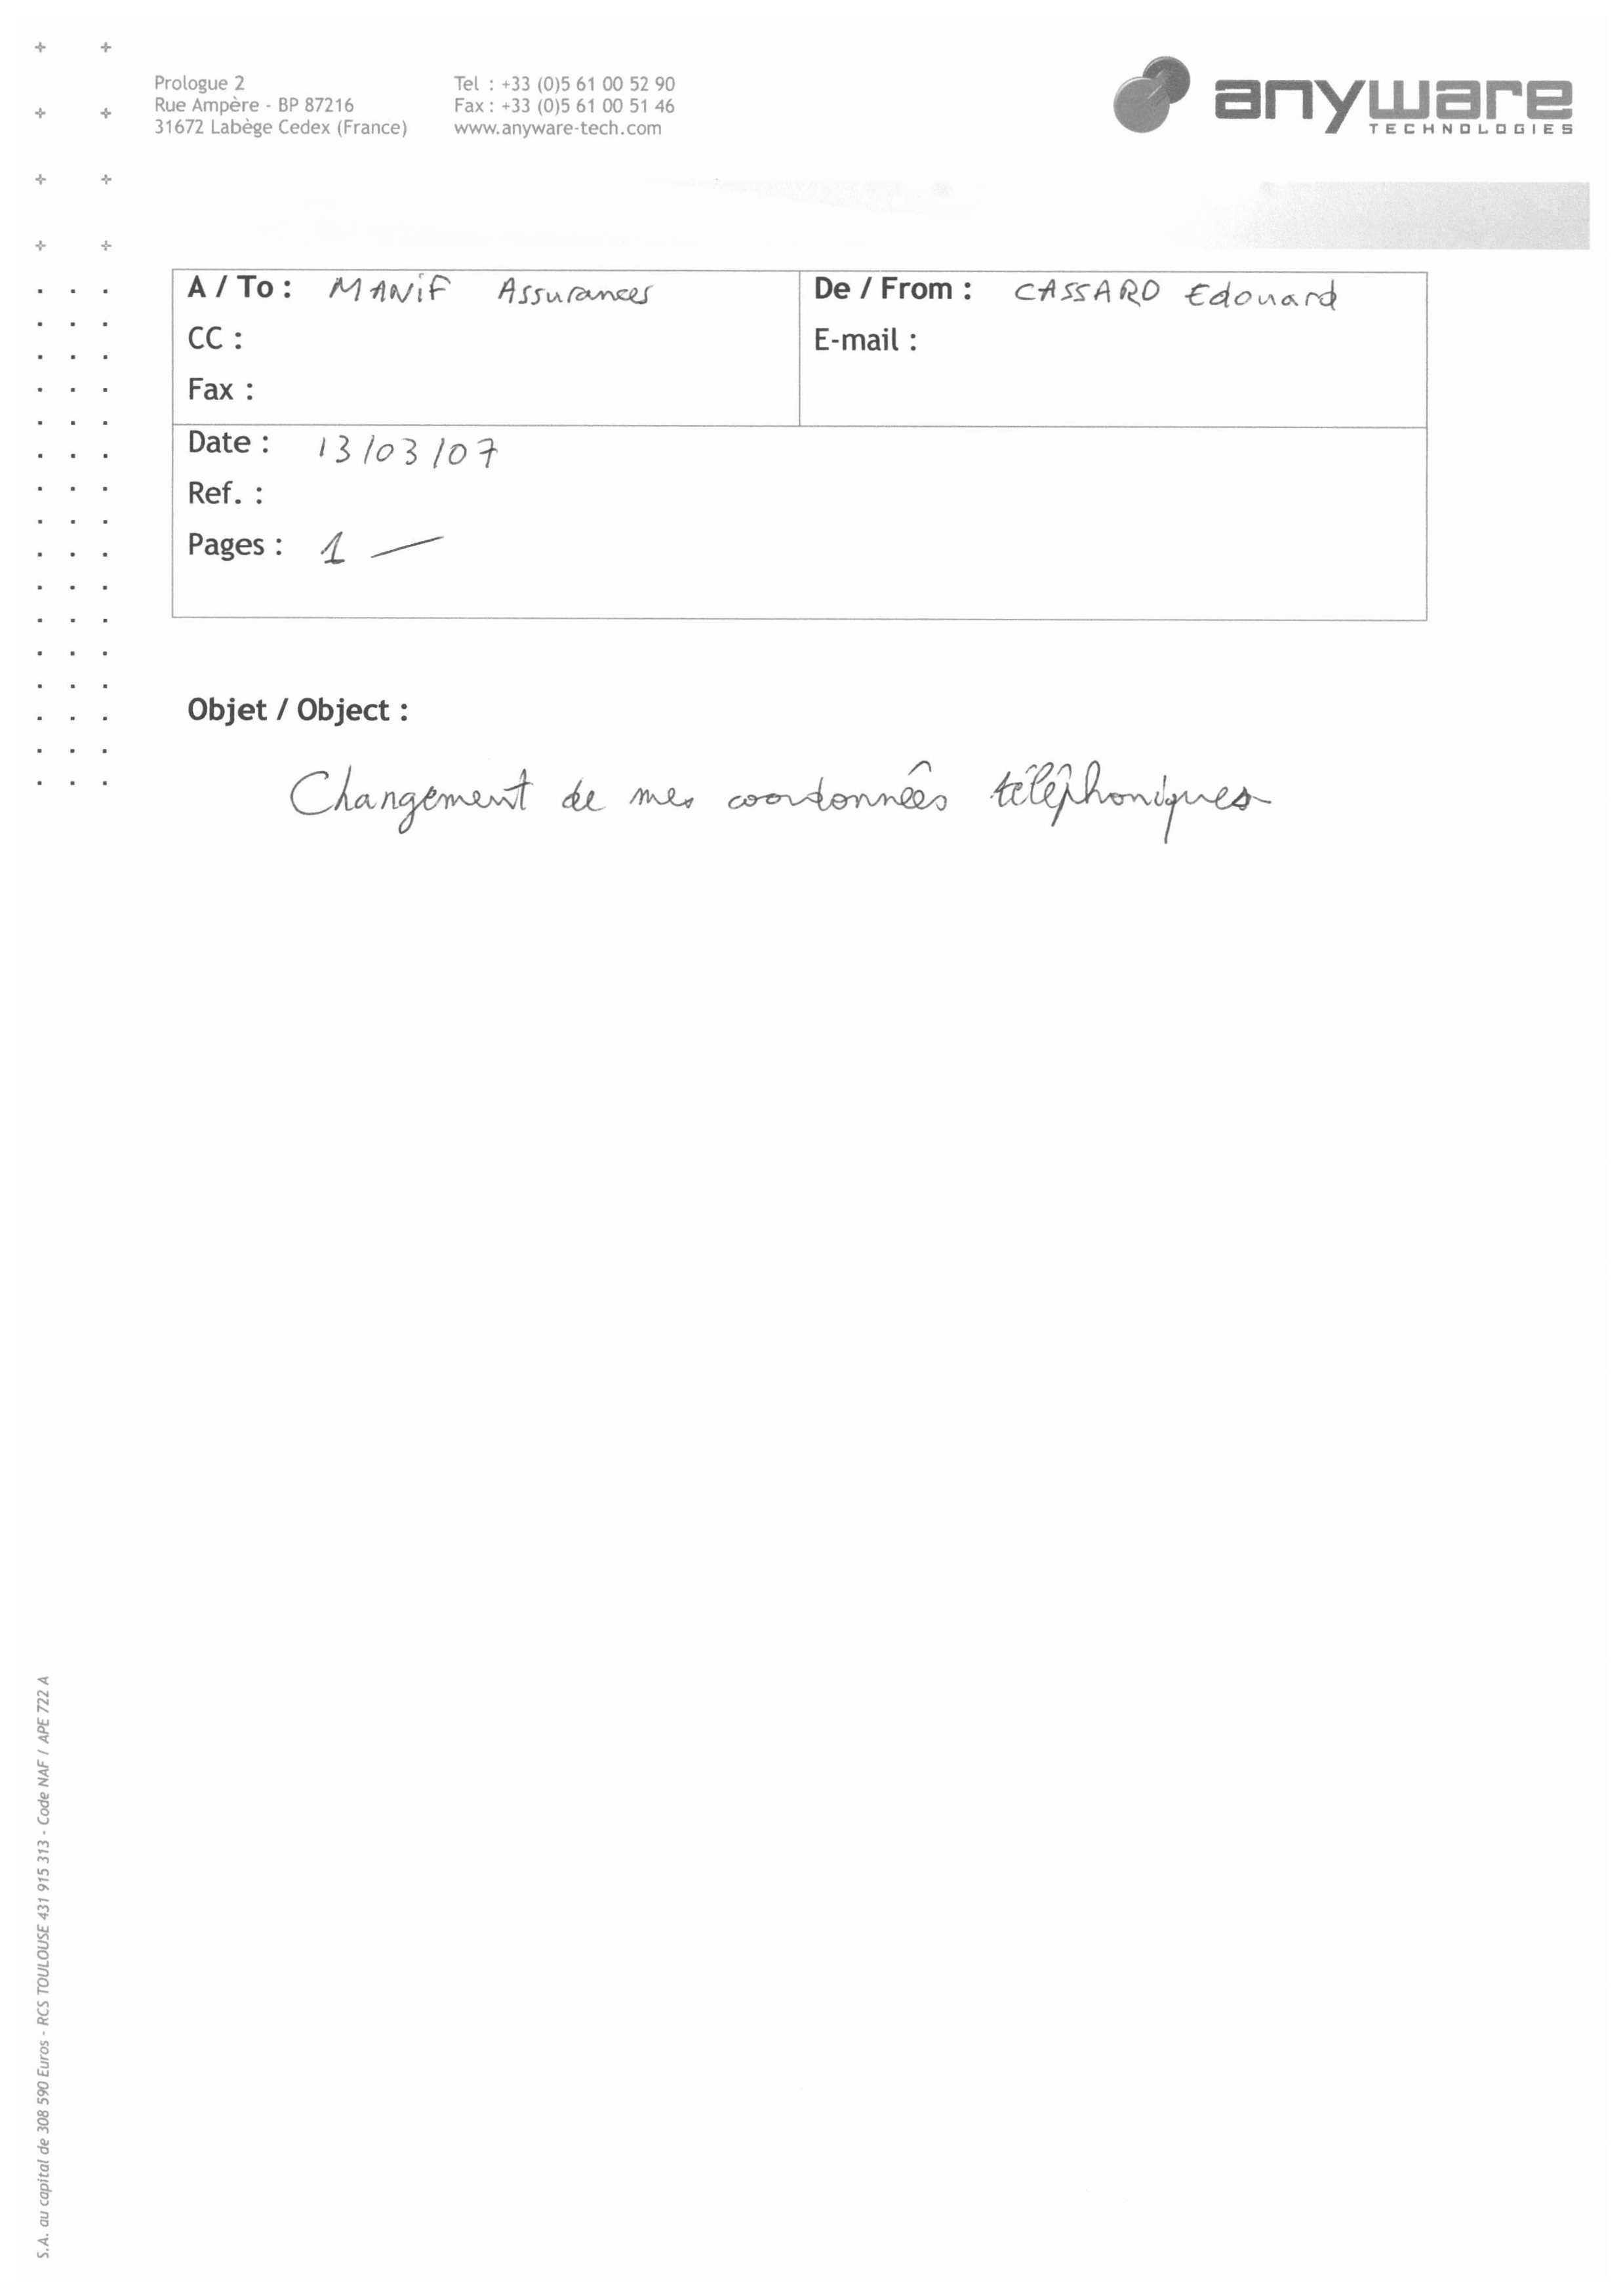 Prologue 2
Rue Ampère - BP 87216
31672 Labège Cedex (France)
Tel : +33 (0)5 61 00 52 90
Fax : +33 (0)5 61 00 51 46
www.anyware-tech.com
anyware
TECHNOLOGIES
A / To : MANiF Assurances
CC :
Fax :
De / From : CASSARD Edouard
E-mail :
Date : 13/03/07
Ref. :
Pages : 1 —
Objet / Object :
Changement de mes coordonnées téléphoniques
S.A. au capital de 308 590 Euros - RCS TOULOUSE 431 915 313 - Code NAF / APE 722 A